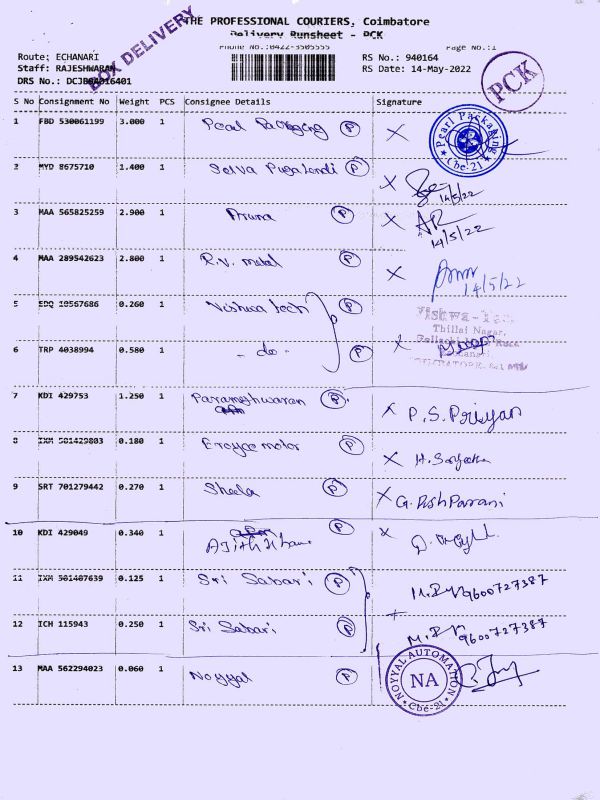 THE PROFESSIONAL COURIERS, Coimbatore
Delivery Runsheet - PCK
BOX DELIVERY
Phone No.:0422-3505555 Page No.:1
Route: ECHANARI RS No.: 940164
Staff: RAJESHWARAN RS Date: 14-May-2022
DRS No.:
PCK
S No Consignment No Weight PCS Consignee Details Signature
1 FBD 530061199 3.000 1 Pearl Packaging P X Pearl Packaging Cbe-21
2 MYD 8675710 1.400 1 Selva P X 14/5/22
3 MAA 565825259 2.900 1 Aruna P X AR 14/5/22
4 MAA 289542623 2.800 1 R.V. metal P X 14/5/22
5 EDQ 10567686 0.260 1 Vishwa tech P Vishwa-Tech
Thillai Nagar,
6 TRP 4038994 0.580 1 - do - P X
7 KDI 429753 1.250 1 Parameshwaran P X P.S.Priyan
8 IXM 501429803 0.180 1 motor P X
9 SRT 701279442 0.270 1 Sheela P X G.
10 KDI 429049 0.340 1 P X
11 IXM 501407639 0.125 1 Sri Sabari P 9600727387
12 ICH 115943 0.250 1 Sri Sabari P 9600727387
13 MAA 562294023 0.060 1 Noyyal P NOYYAL AUTOMATION NA Cbe-21